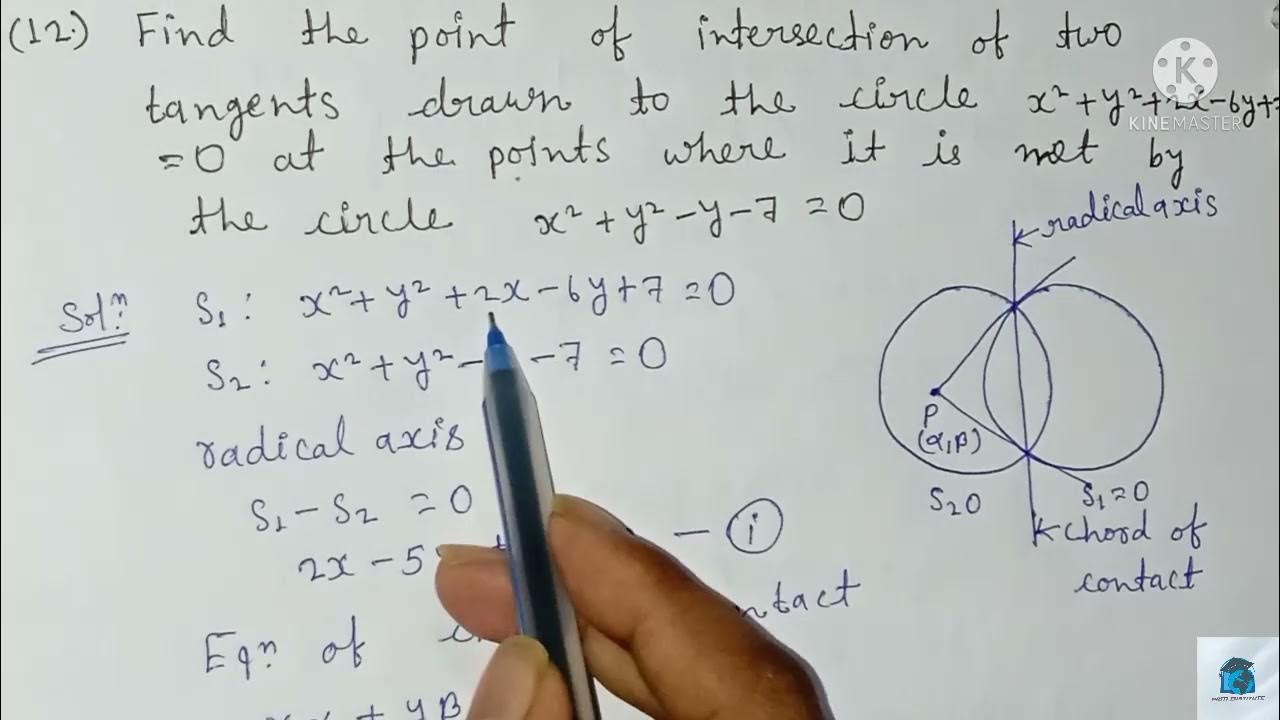 (12.) Find the point of intersection of two
tangents drawn to the circle x² + y² + 2x - 6y +
= 0 at the points where it is met by
the circle x² + y² - y - 7 = 0
K
KINEMASTER
Solⁿ: S₁ : x² + y² + 2x - 6y + 7 = 0
S₂ : x² + y² - - 7 = 0
radical axis
S₁ - S₂ = 0
2x - 5 - (i)
Eqⁿ of
radical axis
P
(α, β)
S₂ 0
S₁ = 0
chord of
contact